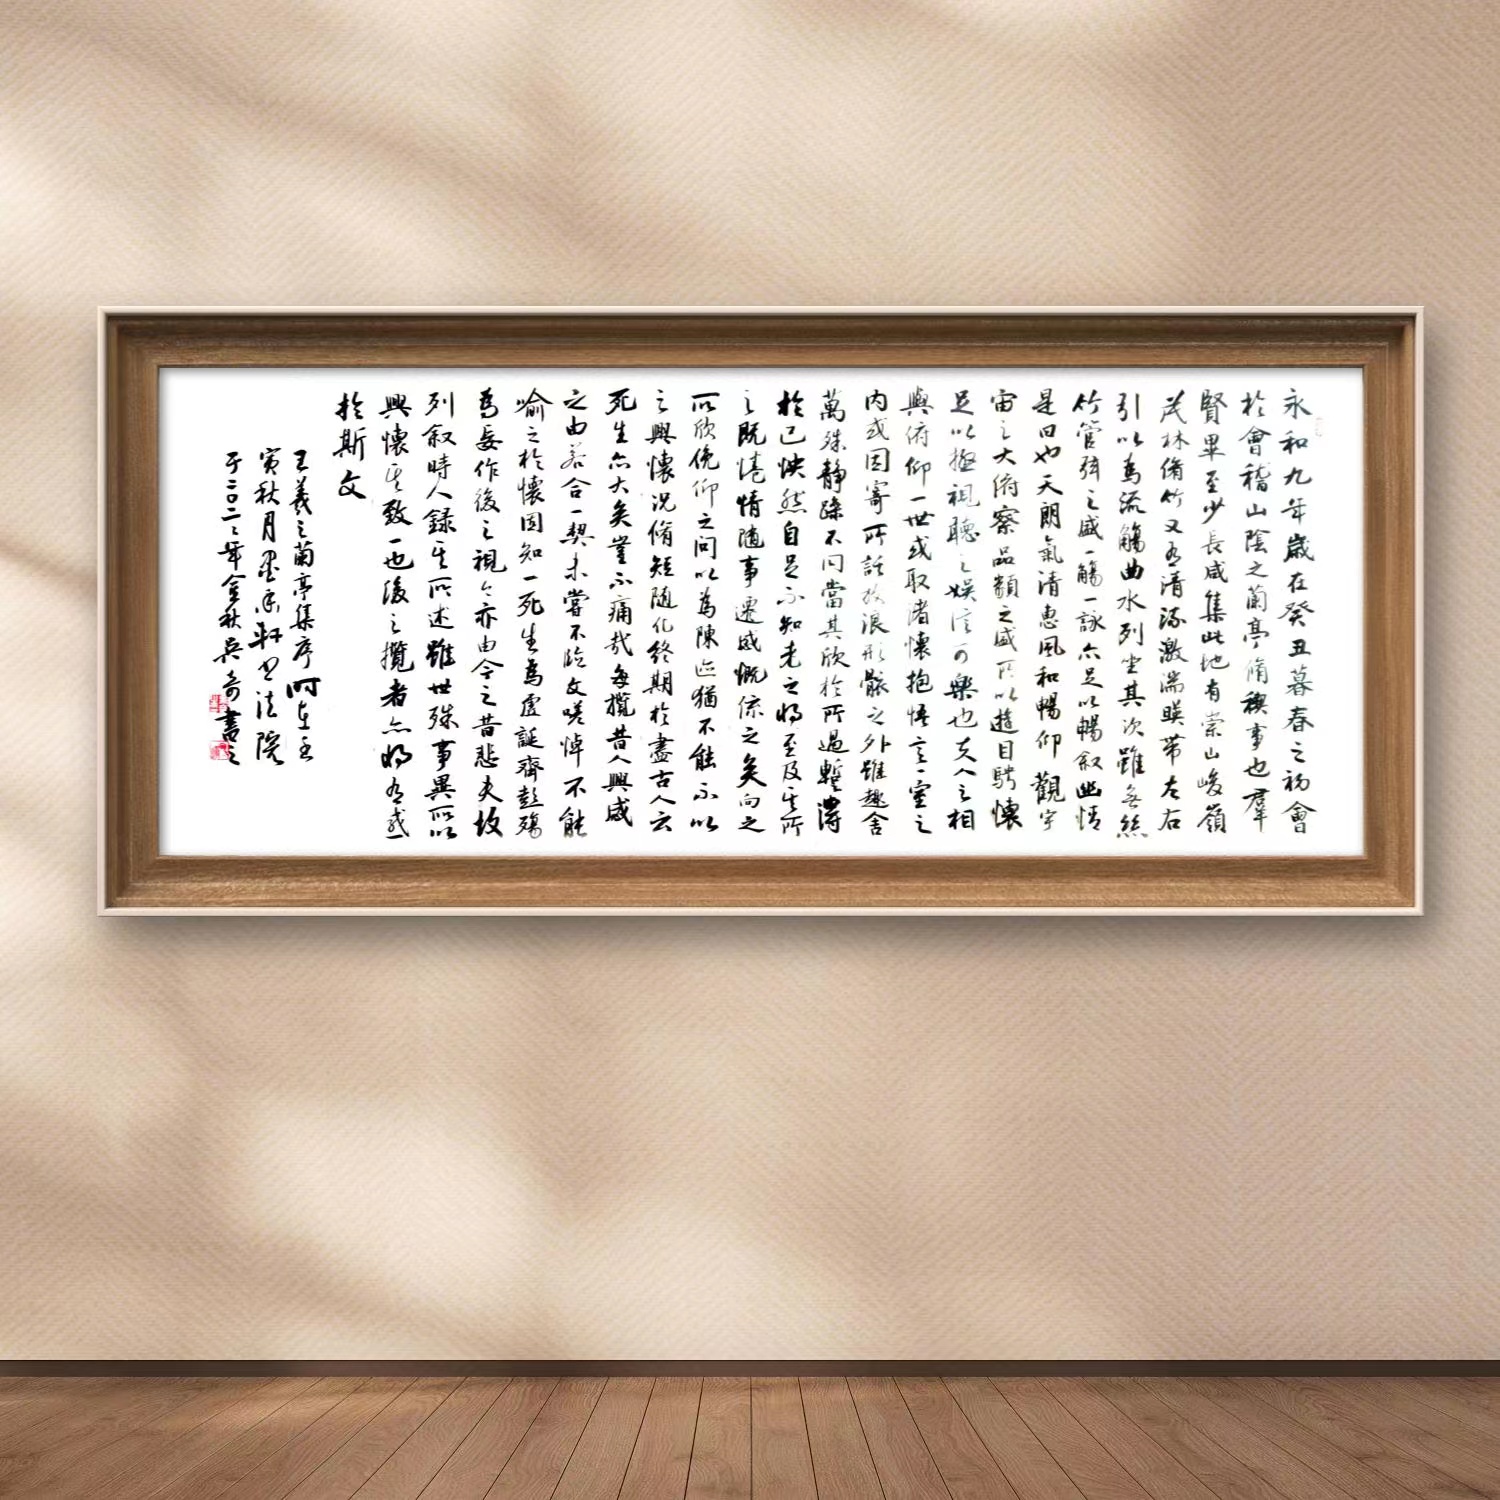 永和九年歲在癸丑暮春之初會
於會稽山陰之蘭亭脩稧事也羣
賢畢至少長咸集此地有崇山峻嶺
茂林脩竹又有清流激湍暎帶左右
引以為流觴曲水列坐其次雖無絲
竹管弦之盛一觴一詠亦足以暢敘幽情
是日也天朗氣清惠風和暢仰觀宇
宙之大俯察品類之盛所以遊目騁懷
足以極視聽之娛信可樂也夫人之相
與俯仰一世或取諸懷抱悟言一室之
內或因寄所託放浪形骸之外雖趣舍
萬殊靜躁不同當其欣於所遇暫得
於己怏然自足不知老之將至及其所
之既惓情隨事遷感慨係之矣向之
所欣俛仰之間以為陳迹猶不能不以
之興懷況脩短隨化終期於盡古人云
死生亦大矣豈不痛哉每攬昔人興感
之由若合一契未嘗不臨文嗟悼不能
喻之於懷固知一死生為虛誕齊彭殤
為妄作後之視今亦由今之昔悲夫故
列敘時人錄其所述雖世殊事異所以
興懷其致一也後之攬者亦將有感
於斯文
王羲之蘭亭集序時在壬
寅秋月 軒書法院
于二〇二二年金秋吳 書之